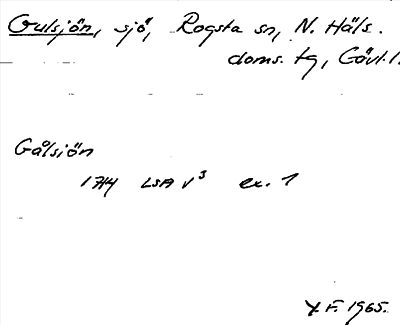 Gulsjön, sjö, Rogsta sn, N. Häls.
doms. tg, Gävl. l.
Gålsjön
1714 LSA V³ ex. 1
Y. F. 1965.